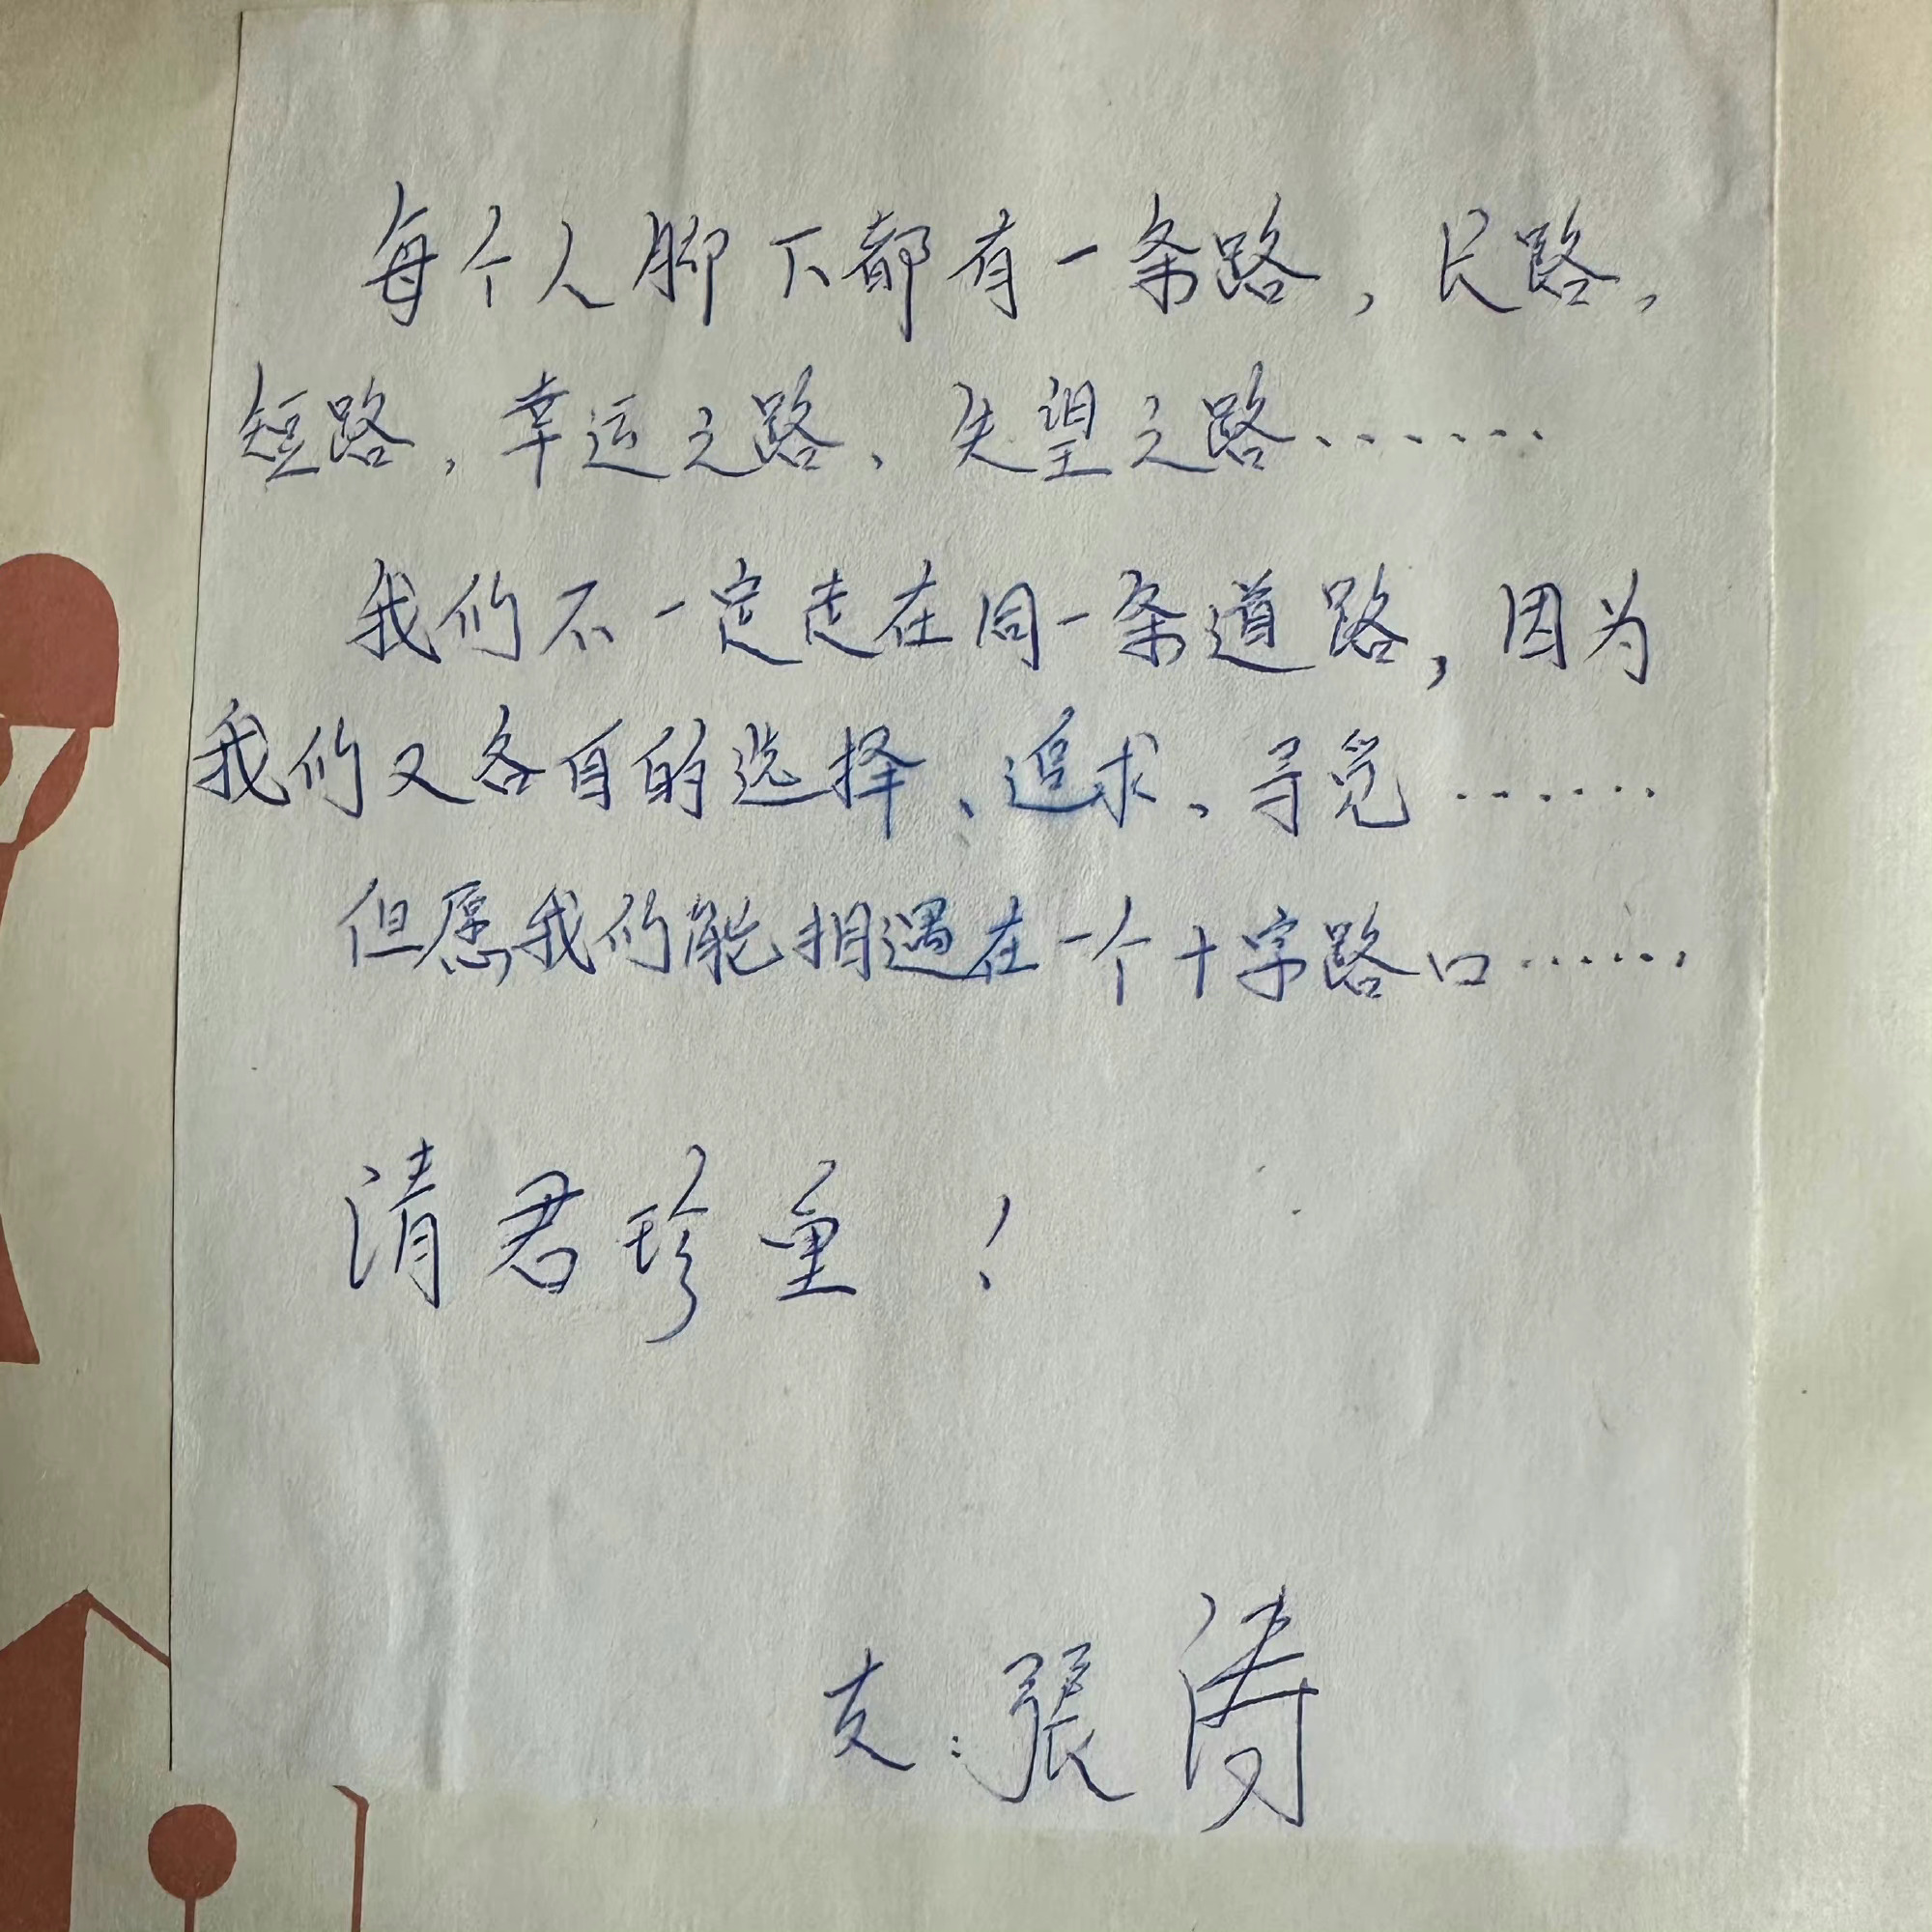 每个人脚下都有一条路，长路，
短路，幸运之路、失望之路……
我们不一定走在同一条道路，因为
我们又各自的选择、追求、寻觅……
但愿我们能相遇在一个十字路口……
清君珍重！
友：張涛